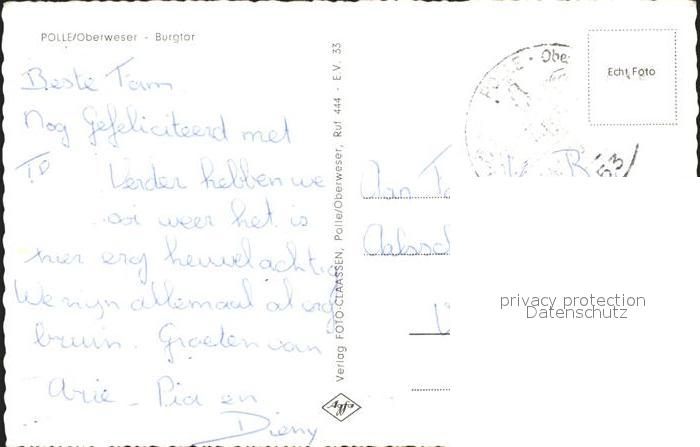 POLLE/Oberweser - Burgtor
Beste Tom
Nog Gefeliciteerd met
Verder hebben we
mooi weer het is
hier erg heuvelachtig
We zijn allemaal al erg
bruin. Groeten van
Arie - Pia en
Dieny
Verlag FOTO-CLAASSEN, Polle/Oberweser, Ruf 444 - E.V. 33
Agfa
POLLE - Obe
53
Echt Foto
Aan
privacy protection
Datenschutz